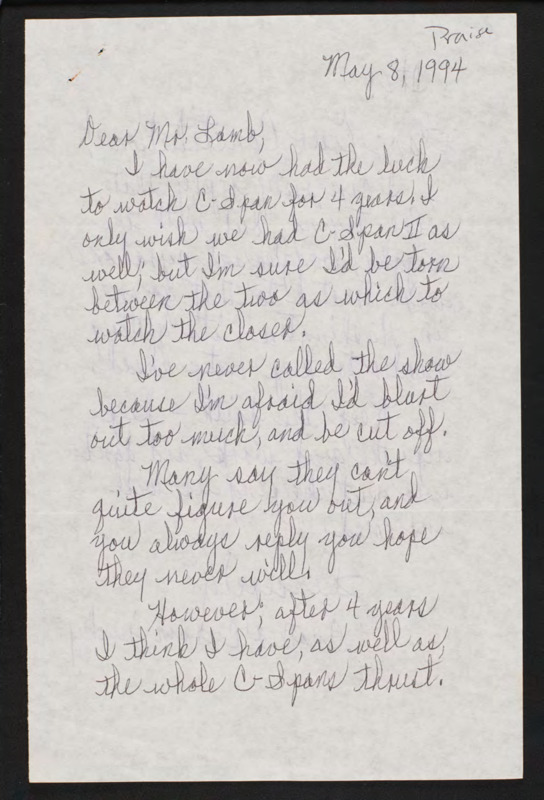 Praise
May 8, 1994
Dear Mr. Lamb,
I have now had the luck
to watch C-Span for 4 years. I
only wish we had C-Span II as
well; but I'm sure I'd be torn
between the two as which to
watch the closer.
I've never called the show
because I'm afraid I'd blurt
out too much, and be cut off.
Many say they can't
quite figure you out, and
you always reply you hope
they never will.
However; after 4 years
I think I have, as well as,
the whole C-Spans thrust.